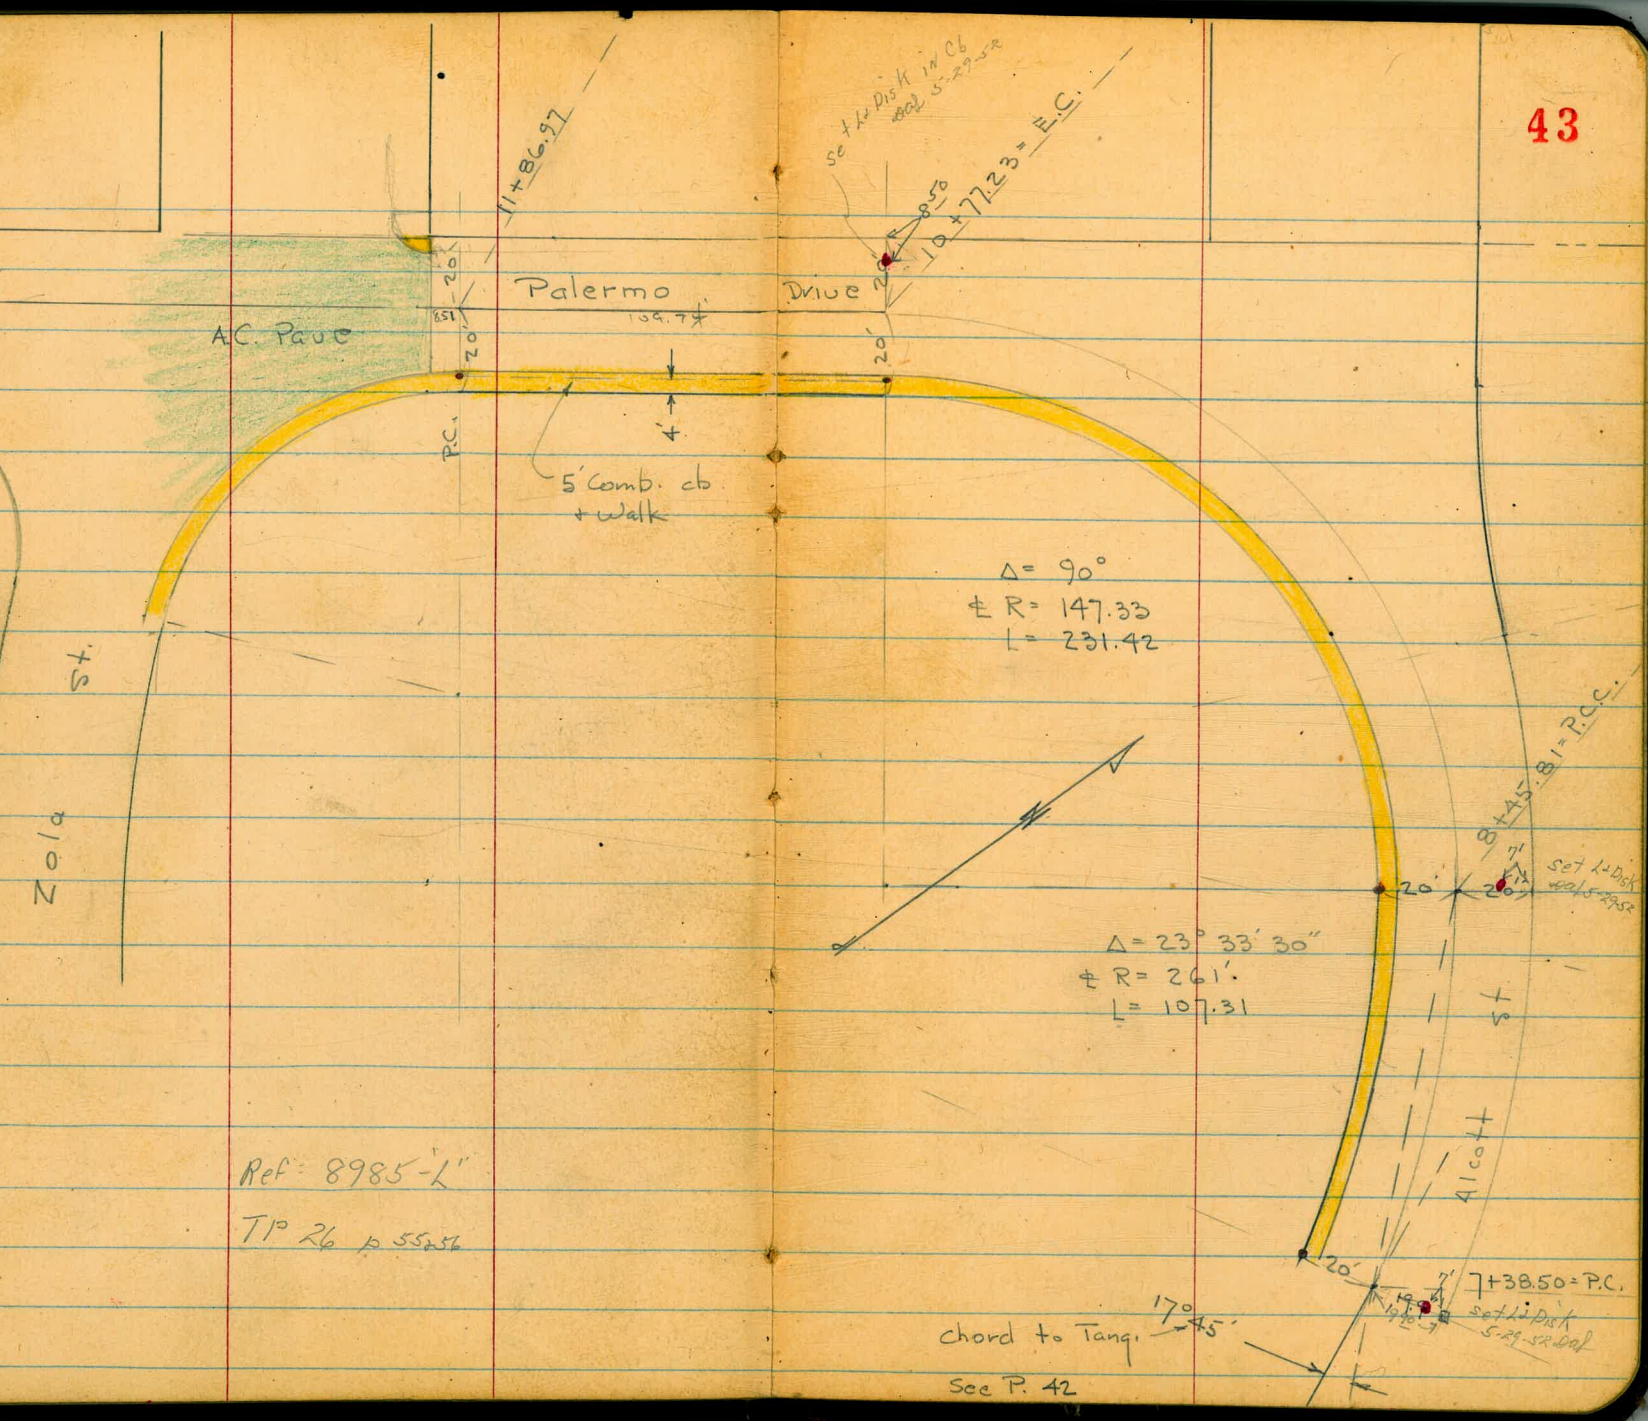 43
set L&Disk in Cb
5-29-52
11+86.97
10+77.23= E.C.
8.50
20'
20'
Palermo Drive
8.51
109.74
A.C. Pave
20'
20'
P.C.
4'
5' Comb. cb
+ Walk
Δ= 90°
℄ R= 147.33
L= 231.42
St.
Zola
8+45.81= P.C.C.
7'
20'
20'
set L&Disk
5-29-52
Δ= 23° 33' 30"
℄ R= 261'.
L= 107.31
St.
Alcott
Ref: 8985-"L"
TP 26 p 55&56
20'
7'
7+38.50= P.C.
set L&Disk
5-29-52
17° 45'
chord to Tang.
See P. 42